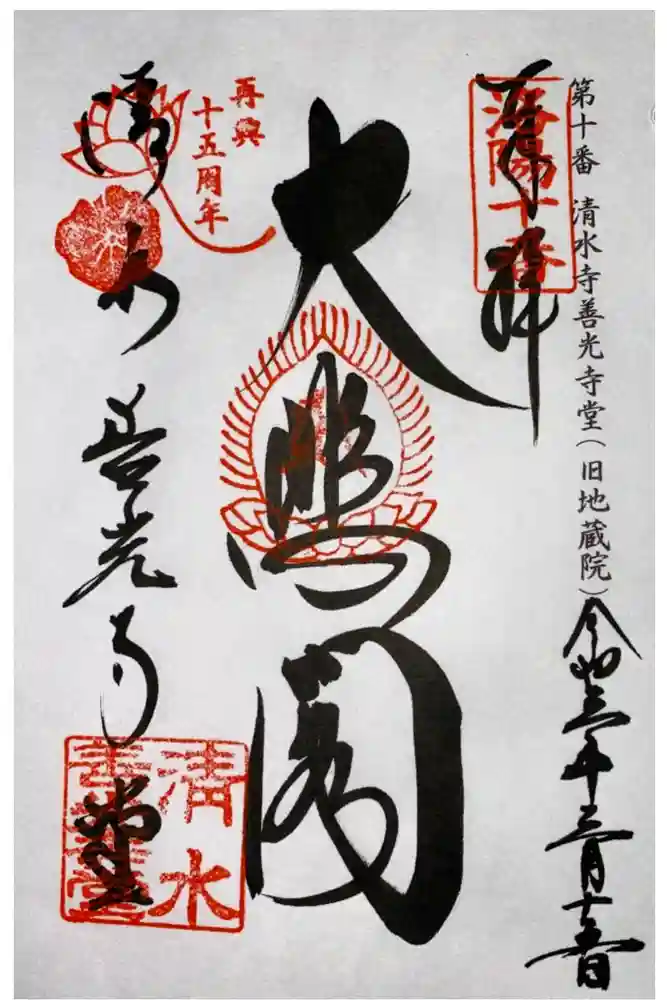 第十番 清水寺善光寺堂（旧地蔵院）
令和三年三月十五日
奉拝
洛陽十番
大悲閣
再興
十五周年
清水善光寺堂
清水
善光寺堂